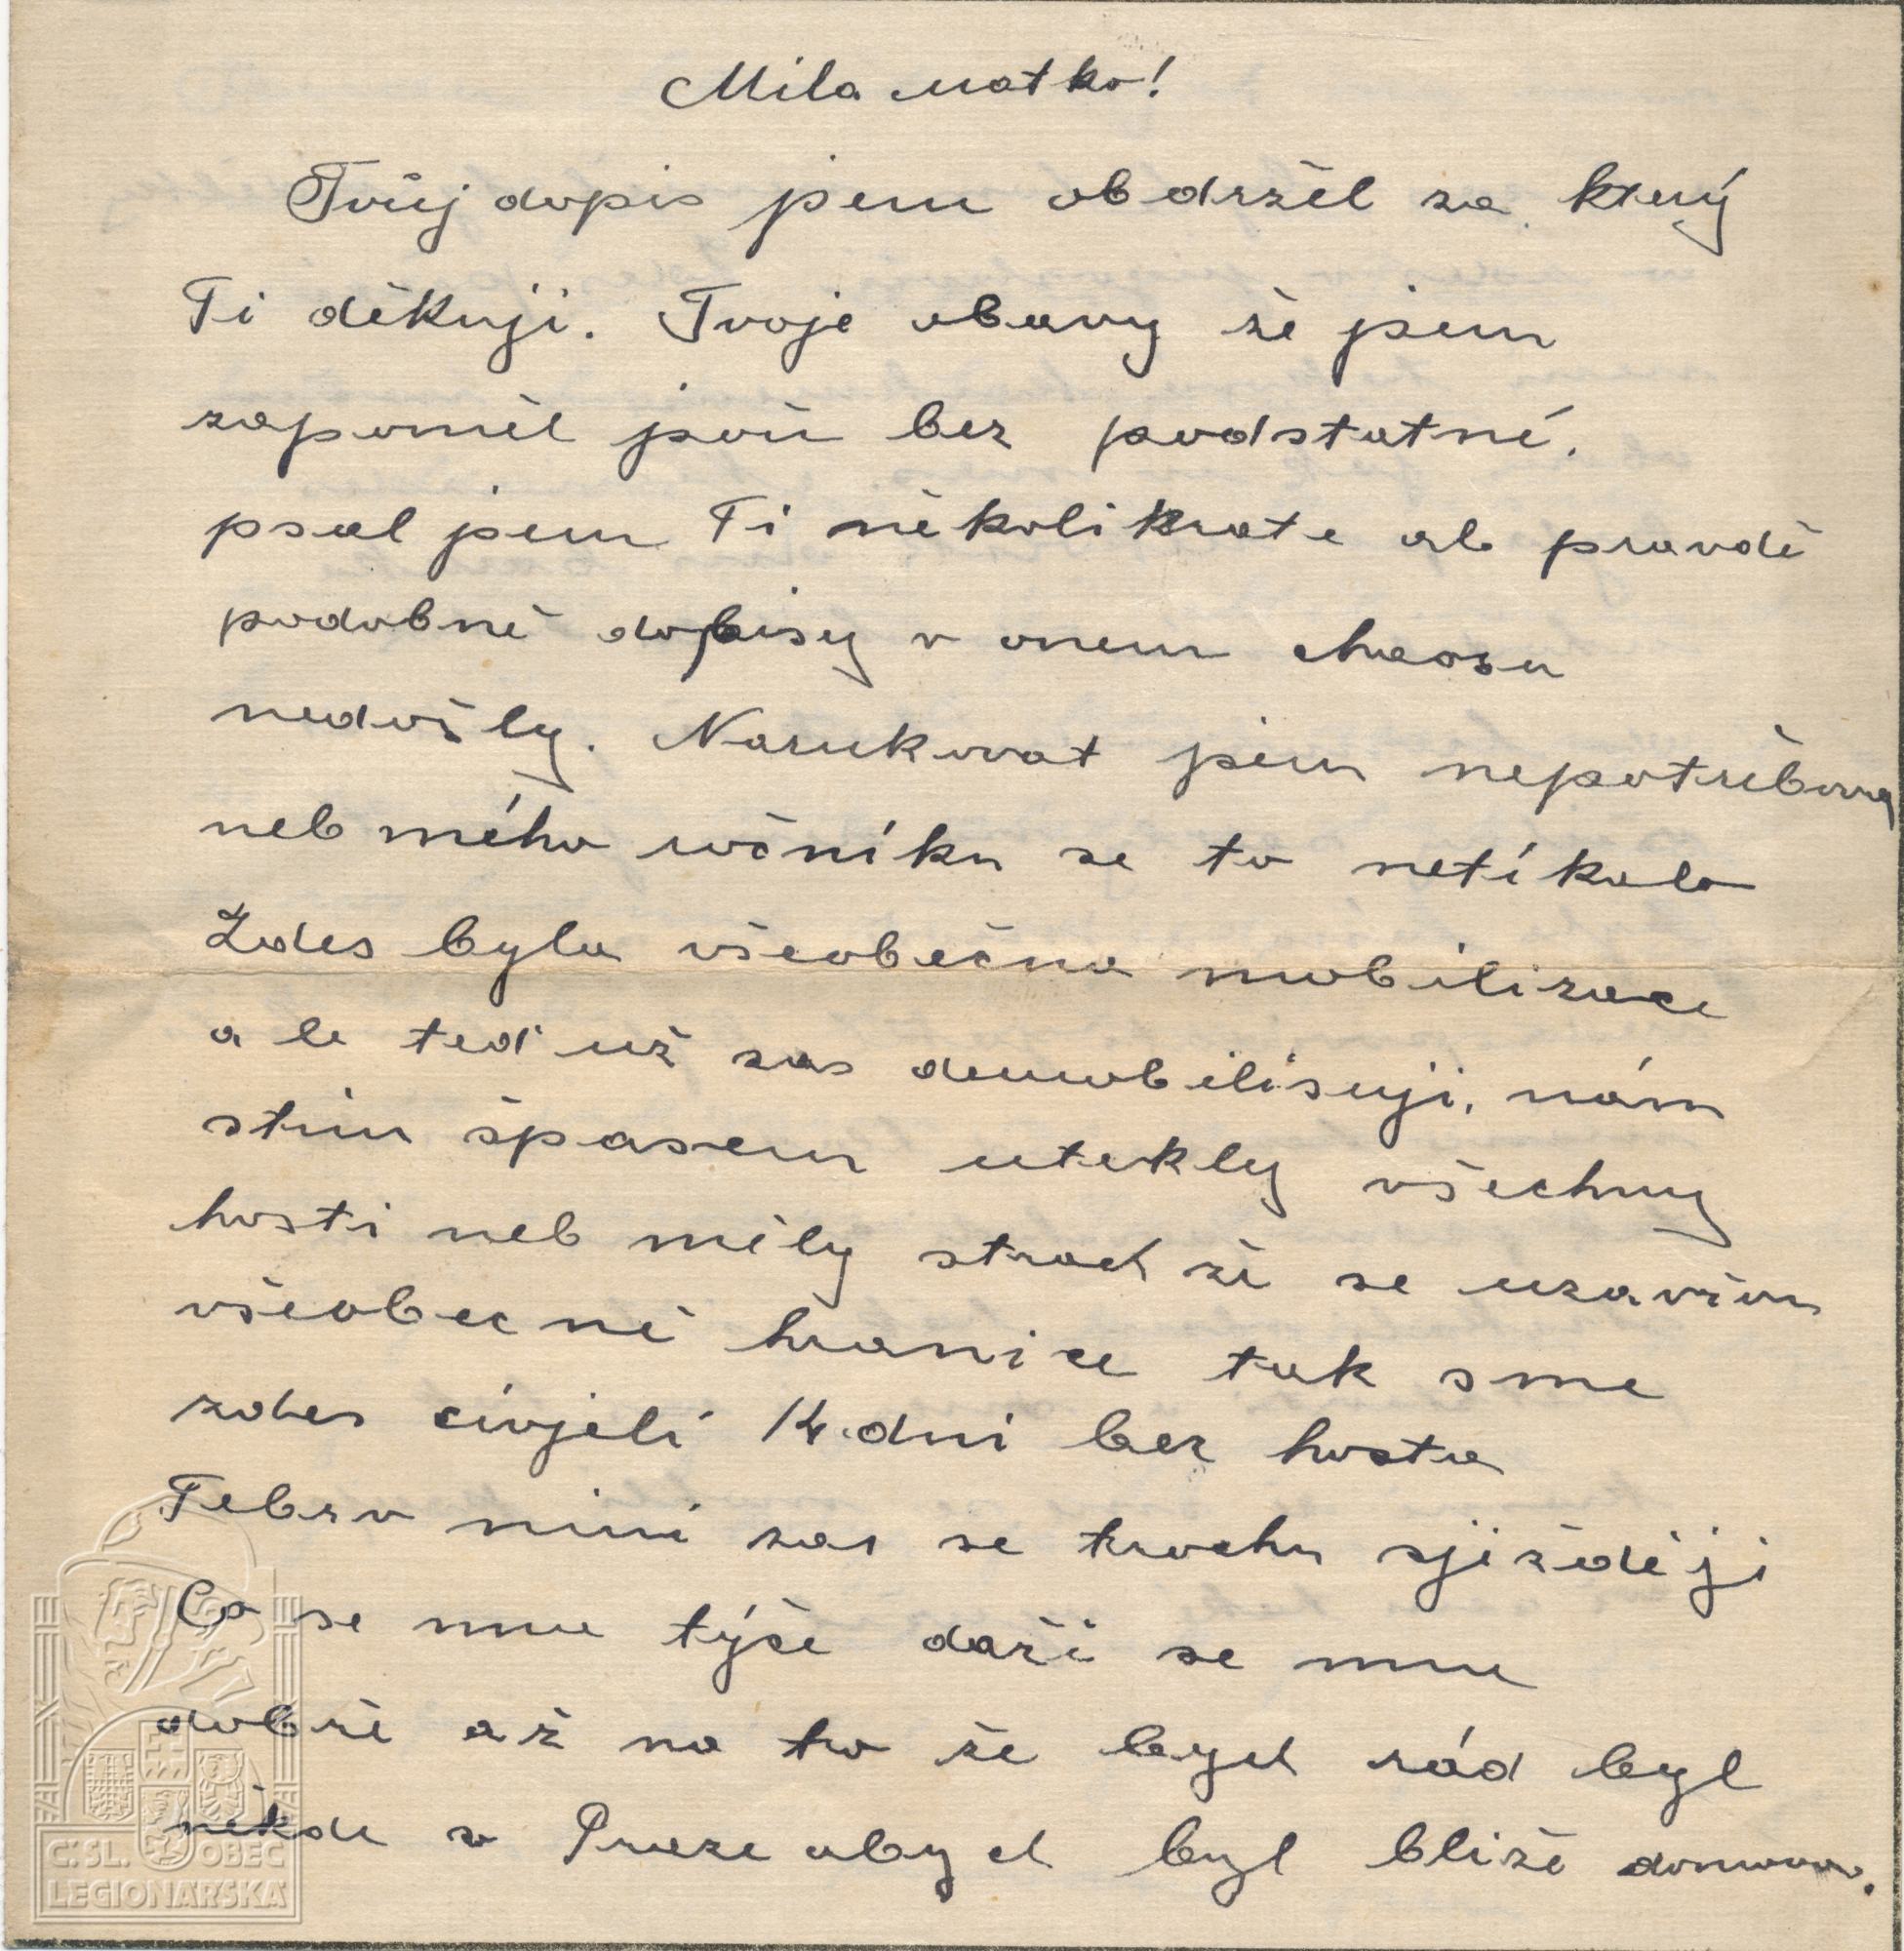 Mila matko!
Tvůj dopis jsem obdržel za který
Ti děkuji. Tvoje obavy že jsem
zapoměl jsou bez podstatné.
psal jsem Ti několikrate ale pravdě
podobně dopisy v onem chaosu
nedošly. Narukovat jsem nepotřebova
neb mého ročníku se to netíkalo
Zdes byla všeobečna mobilizace
ale teď už zas demobilisuji, nám
stim špasem utekly všechny
hosti neb měly strach že se uzavřou
všeobecně hranice tak sme
zdes civjeli 14 dni bez hosta
Tebrv nini zas se trochu sjižději
Co se mne týče daři se mne
dobře až na to že bych rád byl
někde v Praze abych byl bliže domova.
Č. SL. OBEC
LEGIONÁŘSKÁ